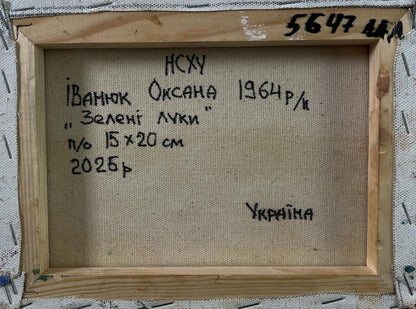 5647
НСХУ
Іванюк Оксана 1964 р/н
„Зелені луки"
п/о 15 x 20 см
2025р
Україна